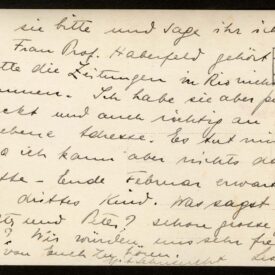 sie bitte und sage ihr ich
Frau Prof. Haberfeld gehört
tte die Zeitungen in Rio nicht
mmen. Ich habe sie aber
ckt und auch richtig an
ebene Adresse. Es tut mir
a ich kann aber nichts da
tte - Ende Februar erwar
drittes Kind. Was sagst
und Peter? schon grosse
? Wir würden uns sehr fre
von Euch zu hören.